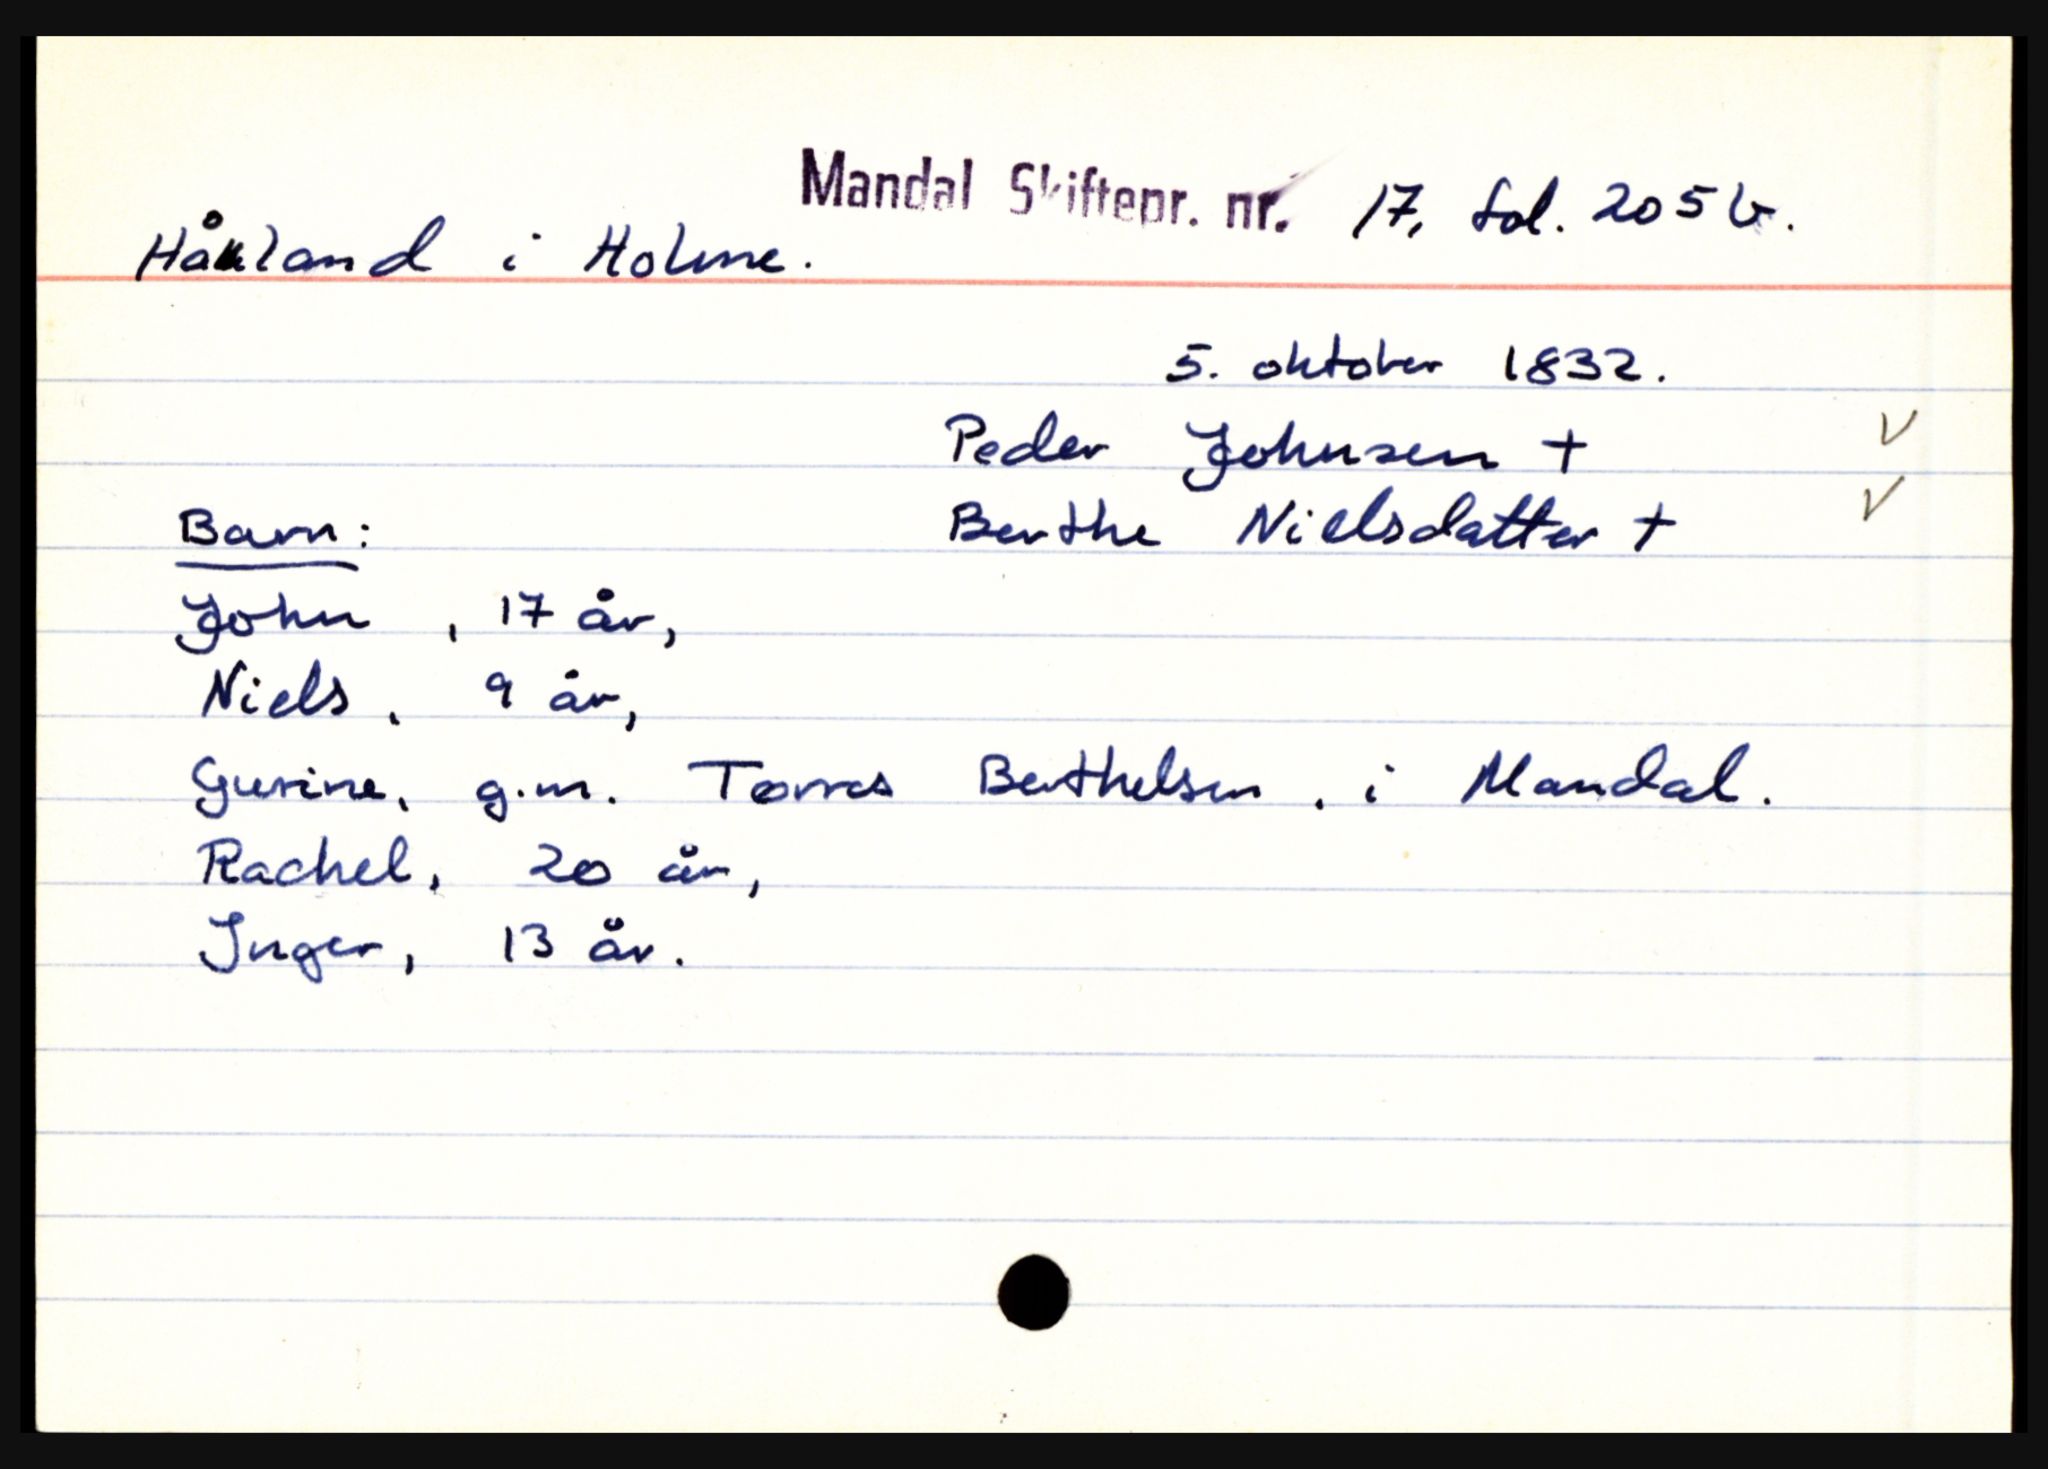 Mandal Skiftepr. nr. 17, fol. 205 b.
Håkland i Holme.
5. oktober 1832.
Peder Johnsen + V
Berthe Nielsdatter + V
Barn:
John, 17 år,
Niels, 9 år,
Gurine, g.m. Tørres Berthelsen, i Mandal.
Rachel, 20 år,
Inger, 13 år.